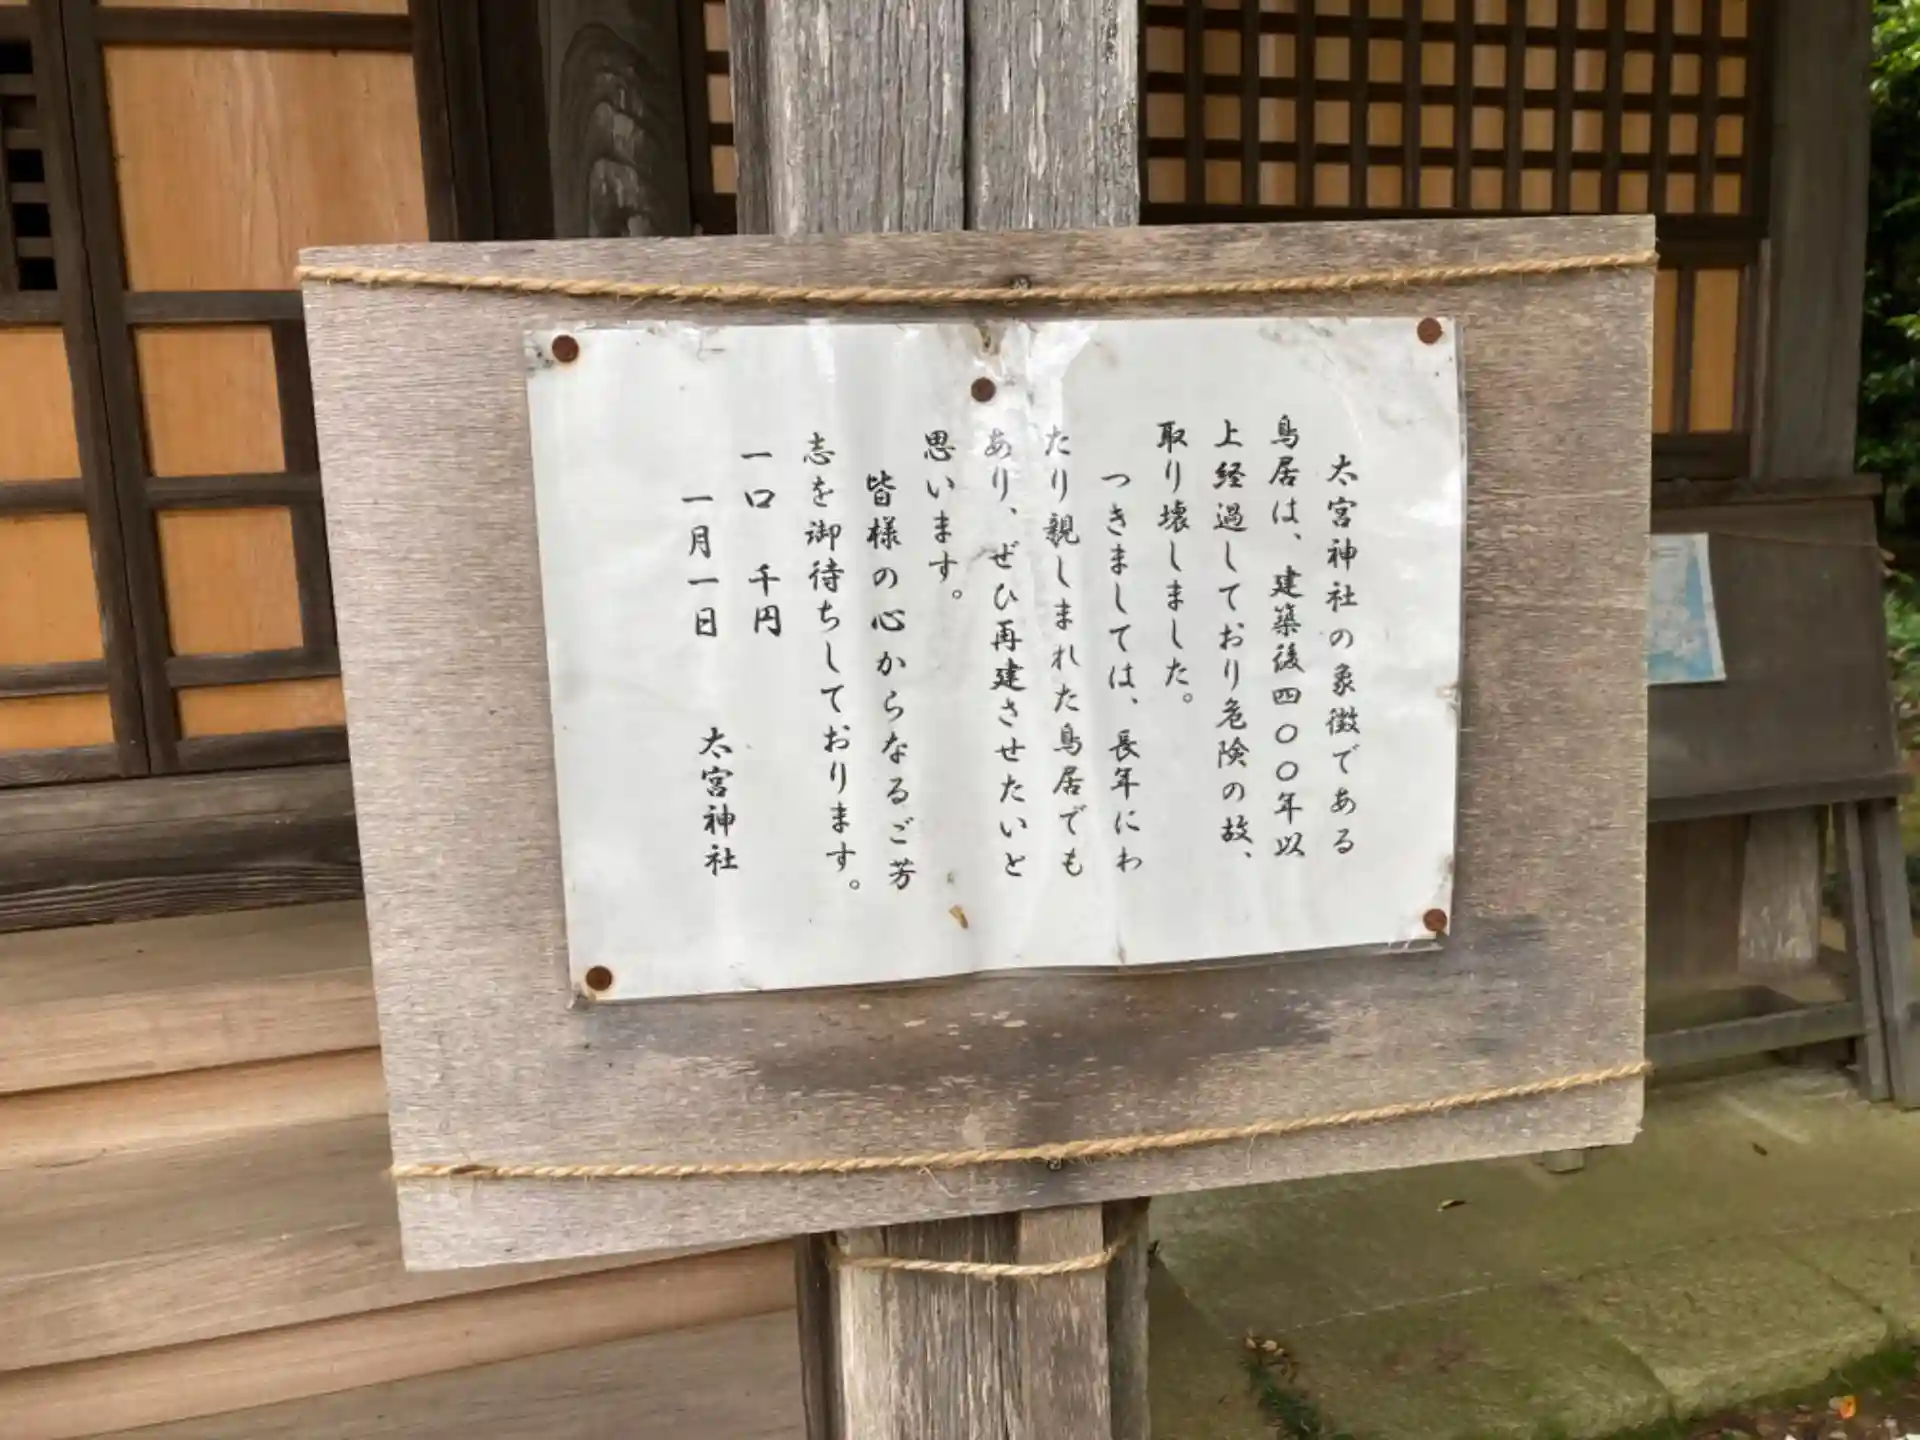 太宮神社の象徴である
鳥居は、建築後四〇〇年以
上経過しており危険の故、
取り壊しました。
つきましては、長年にわ
たり親しまれた鳥居でも
あり、ぜひ再建させたいと
思います。
皆様の心からなるご芳
志を御待ちしております。
一口 千円
一月一日
太宮神社